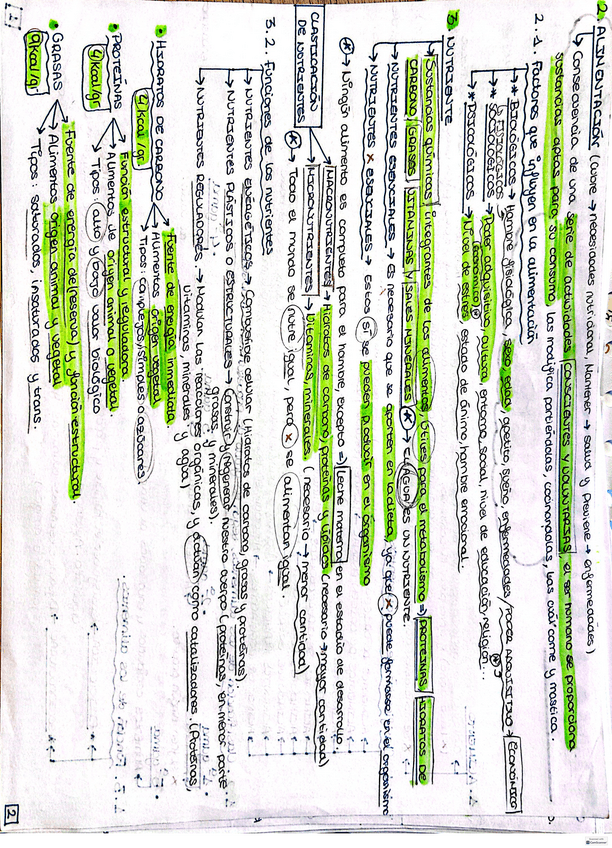 2. ALIMENTACIÓN (cubre → necesidades nutricional, Mantener → salud y Previene → enfermedades)
↳ Consecuencia de una serie de actividades CONSCIENTES Y VOLUNTARIAS, el ser humano se proporciona
sustancias aptas para su consumo, las modifica partiéndolas, cocinándolas, las cual come y mastica.
2.1. Factores que influyen en la alimentación
→ * BIOLÓGICOS → Hambre fisiológica, sexo, edad, apetito, sueño, enfermedades
↳ FISIOLÓGICOS
→ * SOCIOLÓGICOS → Poder adquisitivo, cultura, entorno social, nivel de educación, religión...
(económico)
→ * PSICOLÓGICOS → Nivel de estrés, estado de ánimo, hambre emocional.
PODER ADQUISITIVO → ECONÓMICO
3. NUTRIENTE
→ Sustancias químicas integrantes de los alimentos, útiles para el metabolismo ⇒ PROTEÍNAS HIDRATOS DE
CARBONO, GRASAS, VITAMINAS Y SALES MINERALES * → EL AGUA ES UN NUTRIENTE.
→ NUTRIENTES ESENCIALES → Es necesario que se aporten en la dieta, ya que x puede formarse en el organismo
→ NUTRIENTES x ESENCIALES → Estos SÍ se pueden producir en el organismo
* → Ningún alimento es completo para el hombre, excepto ⇒ Leche materna en el estadio de desarrollo.
CLASIFICACIÓN DE NUTRIENTES
→ MACRONUTRIENTES → Hidratos de carbono, proteínas y lípidos (necesario → mayor cantidad)
→ MICRONUTRIENTES → Vitaminas, minerales (necesario → menor cantidad)
* → Todo el mundo se nutre igual, pero x se alimentan igual.
3.2. Funciones de los nutrientes
→ NUTRIENTES ENERGÉTICOS → Combustible celular (Hidratos de carbono, grasas y proteínas).
→ NUTRIENTES PLÁSTICOS O ESTRUCTURALES → Construir y regenerar nuestro cuerpo (proteínas, en menor parte
grasas, y minerales).
→ NUTRIENTES REGULADORES → Modulan las reacciones orgánicas, y actúan como catalizadores (Proteínas,
vitaminas, minerales y agua)
• HIDRATOS DE CARBONO
4 kcal/gr
Fuente de energía inmediata
Alimentos origen vegetal
Tipos: complejos/simples o azúcares.
• PROTEÍNAS
4 kcal/gr
Función estructural y reguladora
Alimentos de origen animal o vegetal
Tipos: alto y bajo valor biológico
• GRASAS
9 kcal/gr
Fuente de energía de (reserva) y función estructural.
Alimentos origen animal y vegetal
Tipos: saturadas, insaturados y trans.
2